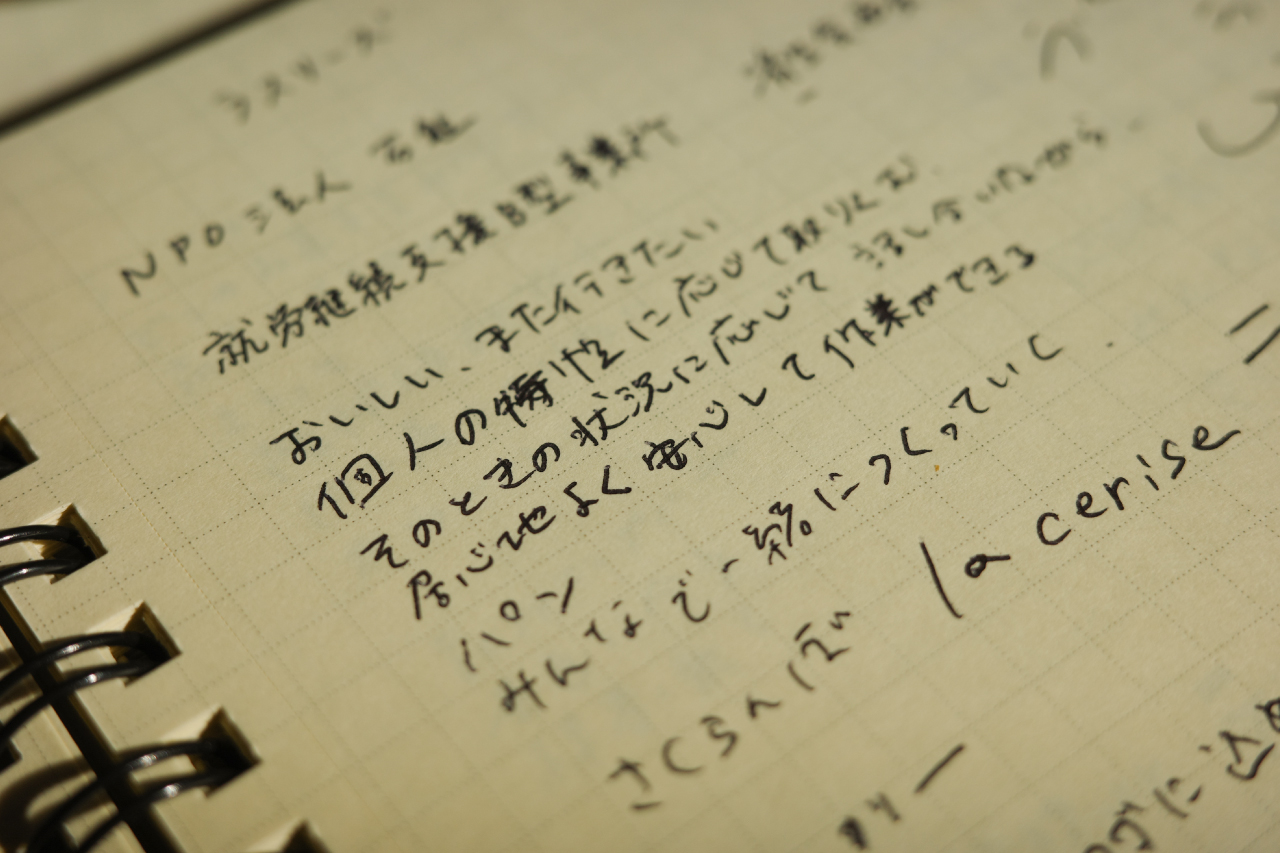 ラスリーズ
NPO法人
就労継続支援B型事業所
おいしい、また行きたい
個人の特性に応じて取りくむ
そのときの状況に応じて 話し合いながら
居心地よく安心して作業ができる
パン
みんなで一緒につくっていく
さくらんぼ la cerise
に込め